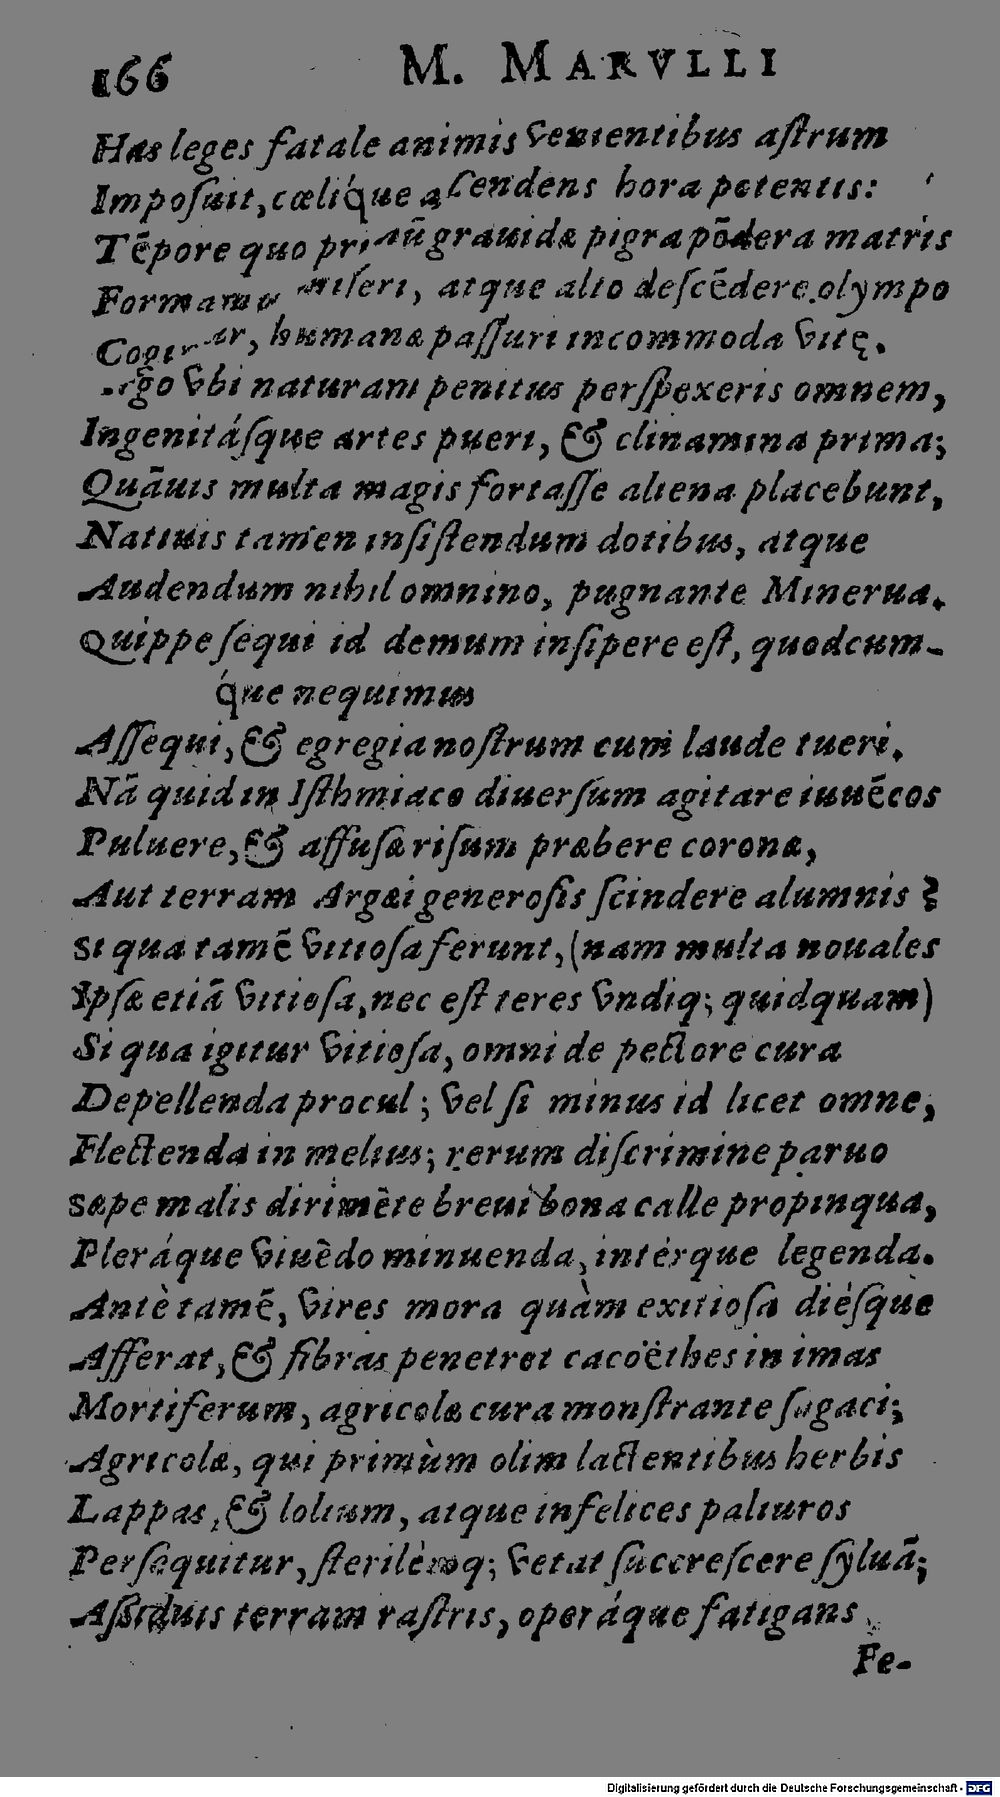 166 M. MARVLLI
Has leges fatale animis venientibus aſtrum
Impoſuit, cœlíque aſcendens hora potentis:
Tēpore quo grauidæ pigra põdera matris
miſeri, atque alto deſcēdere olympo
humanæ paſſuri incommoda vitę.
vbi naturam penitus perſpexeris omnem,
Ingenitáſque artes pueri, & clinamina prima;
Quãuis multa magis fortaſſe aliena placebunt,
Natiuis tamen inſiſtendum dotibus, atque
Audendum nihil omnino, pugnante Minerua.
Quippe ſequi id demum inſipere eſt, quodcum-
que nequimus
Aſſequi, & egregia noſtrum cum laude tueri.
Nã quid in Iſthmiaco diuerſum agitare iuuēcos
Puluere, & affuſæ riſum præbere coronæ,
Aut terram Argæi generoſis ſcindere alumnis?
Si qua tamē vitioſa ferunt, (nam multa nouales
Ipſæ etiã vitioſa, nec eſt teres vndiq; quidquam)
Si qua igitur vitioſa, omni de pectore cura
Depellenda procul; vel ſi minus id licet omne,
Flectenda in melius; rerum diſcrimine paruo
Sæpe malis dirimēte breui bona calle propinqua,
Pleráque viuēdo minuenda, intérque legenda.
Antè tamē, vires mora quàm exitioſa diéſque
Afferat, & fibras penetret cacoëthes in imas
Mortiferum, agricolæ cura monſtrante ſagaci;
Agricolæ, qui primùm olim lactentibus herbis
Lappas, & lolium, atque infelices paliuros
Perſequitur, ſterilémq; vetat ſuccreſcere ſyluã;
Aſſiduis terram raſtris, operáque fatigans
Fe-
Digitalisierung gefördert durch die Deutsche Forschungsgemeinschaft - DFG